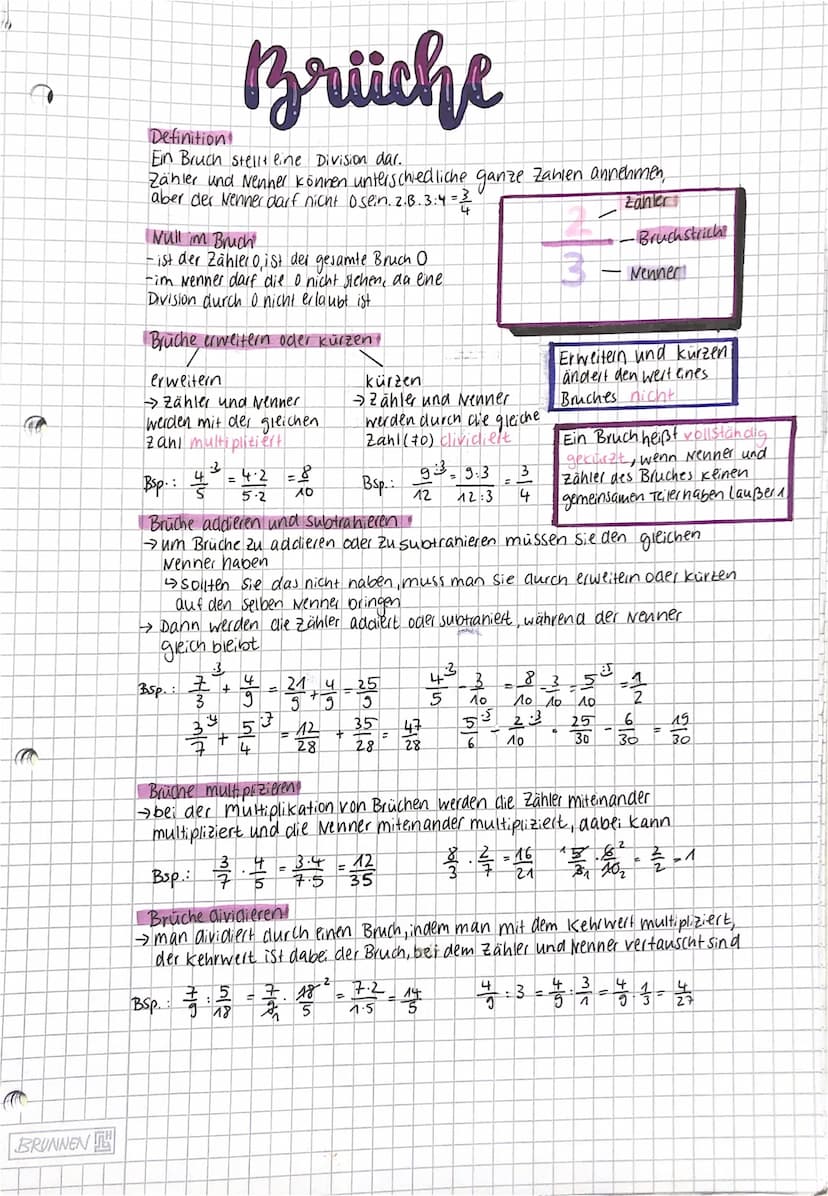 Brüche
Definition
Ein Bruch stellt eine Division dar.
Zähler und Nenner können unterschiedliche ganze Zahlen annehmen,
aber der Nenner darf nicht 0 sein. z.B. 3:4 = 3/4
2/3
Zähler
Bruchstrich
Nenner
Null im Bruch
- ist der Zähler 0, ist der gesamte Bruch 0
- im Nenner darf die 0 nicht stehen, da eine
Division durch 0 nicht erlaubt ist
Brüche erweitern oder kürzen
erweitern
→ Zähler und Nenner
werden mit der gleichen
Zahl multipliziert
Bsp.: 4/5 = 4·2/5·2 = 8/10
kürzen
→ Zähler und Nenner
werden durch die gleiche
Zahl (≠0) dividiert
Bsp.: 9/12 :3 = 9:3/12:3 = 3/4
Erweitern und kürzen
ändert den Wert eines
Bruches nicht
Ein Bruch heißt vollständig
gekürzt, wenn Nenner und
Zähler des Bruches keinen
gemeinsamen Teiler haben (außer 1
Brüche addieren und subtrahieren
→ um Brüche zu addieren oder zu subtrahieren müssen sie den gleichen
Nenner haben
↳ sollten sie das nicht haben, muss man sie durch erweitern oder kürzen
auf den selben Nenner bringen
→ Dann werden die Zähler addiert oder subtrahiert, während der Nenner
gleich bleibt
Bsp.: 7/3 ·3 + 4/9 = 21/9 + 4/9 = 25/9 4/5 - 3/10 = 8/10 - 3/10 = 5/10 :5 = 1/2
3/7 ·4 + 5/4 ·7 = 12/28 + 35/28 = 47/28 5/6 ·5 - 2/10 ·3 = 25/30 - 6/30 = 19/30
Brüche multiplizieren
→ bei der Multiplikation von Brüchen werden die Zähler miteinander
multipliziert und die Nenner miteinander multipliziert, dabei kann
Bsp.: 3/7 · 4/5 = 3·4/7·5 = 12/35 8/3 · 2/7 = 16/21 = 2/2 = 1
Brüche dividieren
→ man dividiert durch einen Bruch, indem man mit dem Kehrwert multipliziert,
der Kehrwert ist dabei der Bruch, bei dem Zähler und Nenner vertauscht sind
Bsp.: 7/9 : 5/18 = 7/9 1 · 18 2/5 = 7·2/1·5 = 14/5 4/9 : 3 = 4/9 : 3/1 = 4/9 · 1/3 = 4/27
BRUNNEN